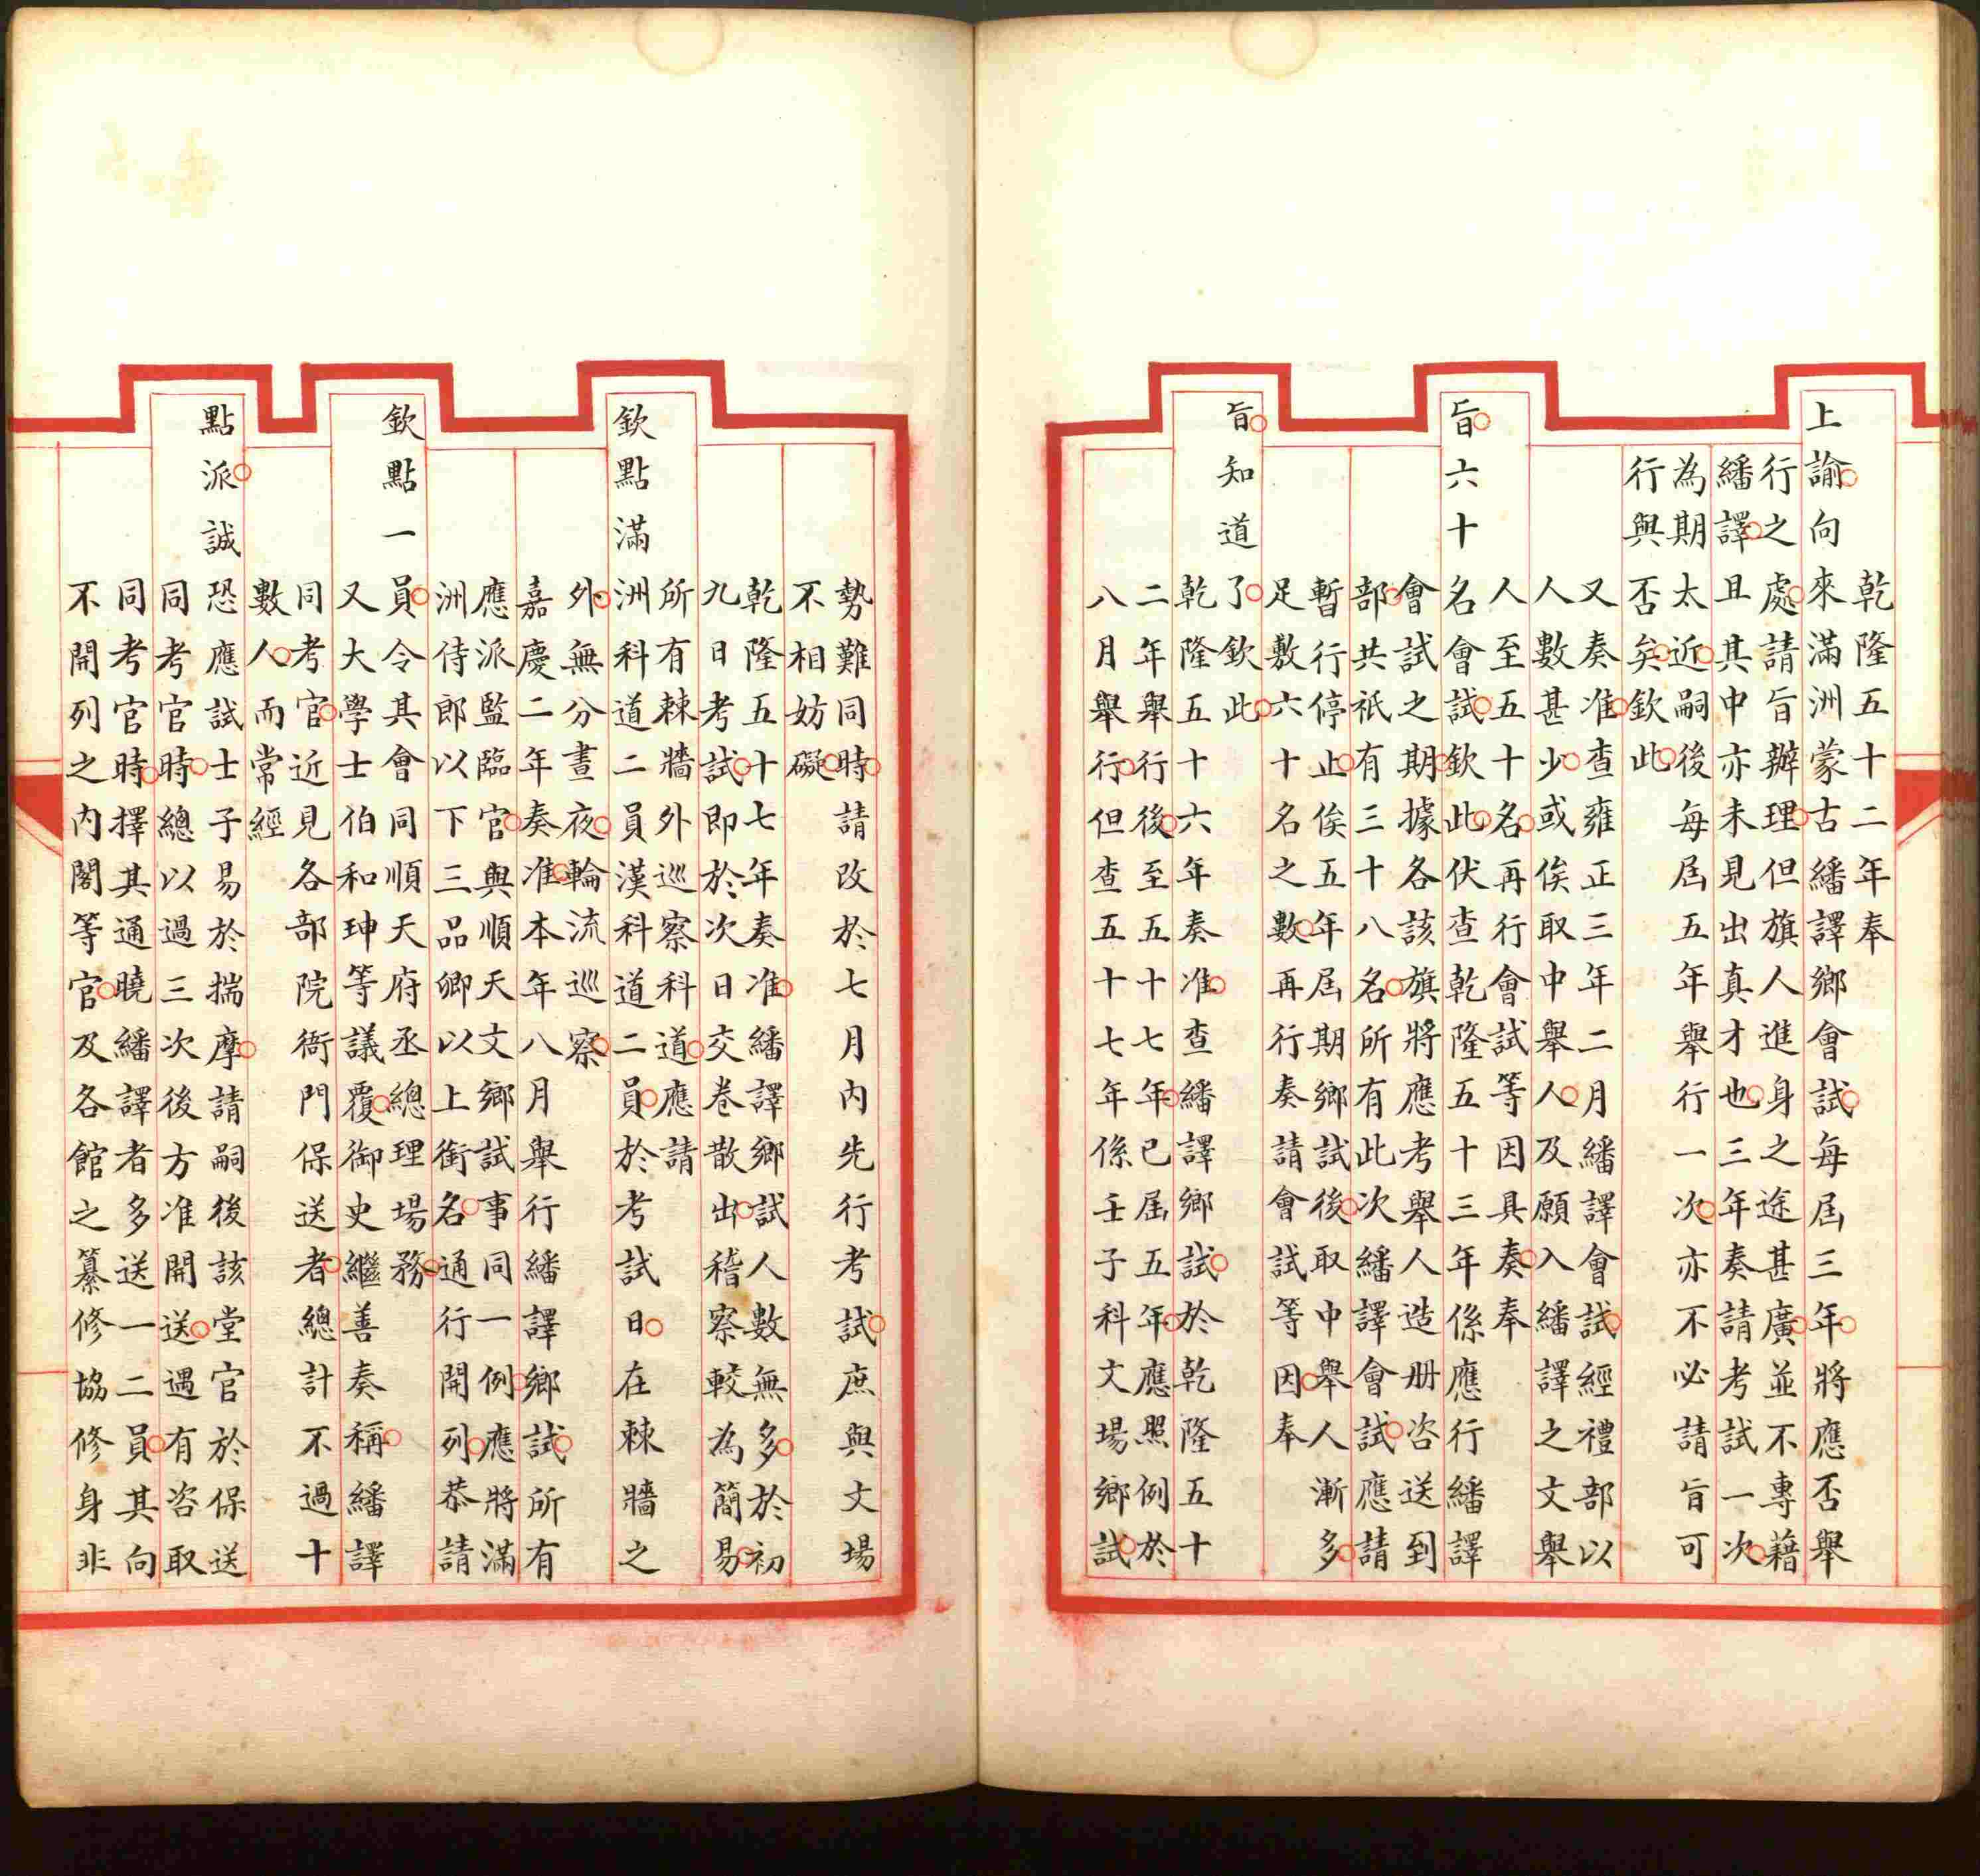 乾隆五十二年奉
上諭向來滿洲蒙古繙譯鄉會試每屆三年將應否舉
行之處請旨辦理但旗人進身之途甚廣並不專藉
繙譯且其中亦未見出真才也三年奏請考試一次
為期太近嗣後每屆五年舉行一次亦不必請旨可
行與否矣欽此
又奏准查雍正三年二月繙譯會試經禮部以
人數甚少或俟取中舉人及願入繙譯之文舉
人至五十名再行會試等因具奏奉
旨六十名會試欽此伏查乾隆五十三年係應行繙譯
會試之期據各該旗將應考舉人造册咨送到
部共祇有三十八名所有此次繙譯會試應請
暫行停止俟五年屆期鄉試後取中舉人漸多
足敷六十名之數再行奏請會試等因奉
旨知道了欽此
乾隆五十六年奏准查繙譯鄉試於乾隆五十
二年舉行後至五十七年已屆五年應照例於
八月舉行但查五十七年係壬子科文場鄉試
勢難同時請改於七月內先行考試庶與文場
不相妨礙
乾隆五十七年奏准繙譯鄉試人數無多於初
九日考試即於次日交卷散出稽察較為簡易
所有棘牆外巡察科道應請
欽點滿洲科道二員漢科道二員於考試日在棘牆之
外無分晝夜輪流巡察
嘉慶二年奏准本年八月舉行繙譯鄉試所有
應派監臨官與順天文鄉試事同一例應將滿
洲侍郎以下三品卿以上銜名通行開列恭請
欽點一員令其會同順天府丞總理場務
又大學士伯和珅等議覆御史繼善奏稱繙譯
同考官近見各部院衙門保送者總計不過十
數人而常經
點派誠恐應試士子易於揣摩請嗣後該堂官於保送
同考官時總以過三次後方准開送遇有咨取
同考官時擇其通曉繙譯者多送一二員其向
不開列之內閣等官及各館之纂修協修身非